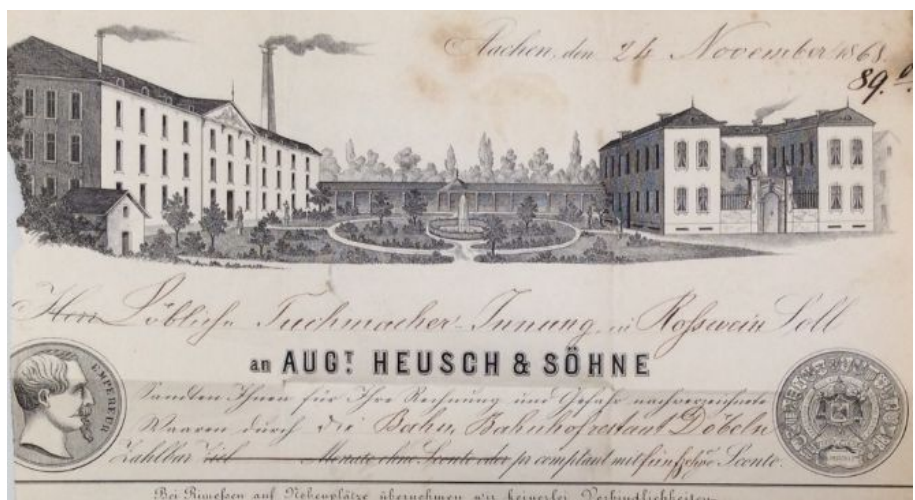 Aachen, den 24 November 1868
89.
Herrn Löbliche Tuchmacher-Innung in Rosswein Soll
an AUGT. HEUSCH & SÖHNE
EMPEREUR
Sandten Ihnen für Ihre Rechnung und Gefahr nachverzeichnete
Waaren durch die Bahn, Bahnhof restant Döbeln
Zahlbar Ziel Monate ohne Sconto oder pr comptant mit fünf Sconto.
Bei Rimessen auf Nebenplätze übernehmen wir keinerlei Verbindlichkeiten.